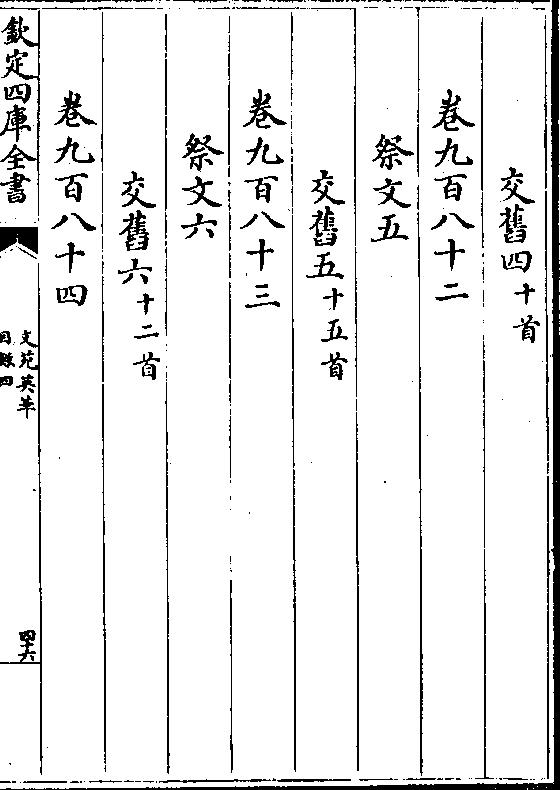 交舊四十首
卷九百八十二
祭文五
交舊五十五首
卷九百八十三
祭文六
交舊六十二首
卷九百八十四
欽定四庫全書
文苑英華
目錄四
四十六